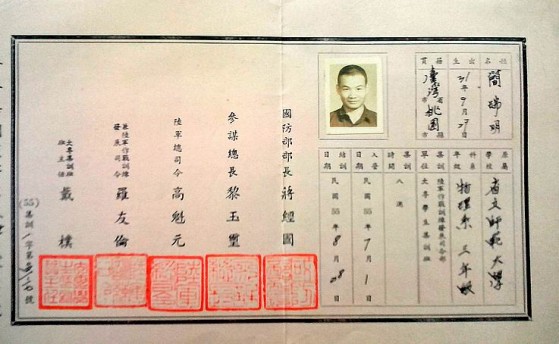 姓名
簡瑞明
出生
31年9月27日
籍貫
臺灣省桃園縣市
原屬學校
省立師範大學
科系年級
物理系 三年級
集訓單位
陸軍作戰訓練發展司令部
大專學生集訓班
入營日期
民國55年7月1日
結訓日期
民國55年8月28日
國防部部長 蔣經國
參謀總長 黎玉璽
陸軍總司令 高魁元
兼陸軍作戰訓練發展司令 羅友倫
大專集訓班班主任 戴樸
(55)集訓一字第 號